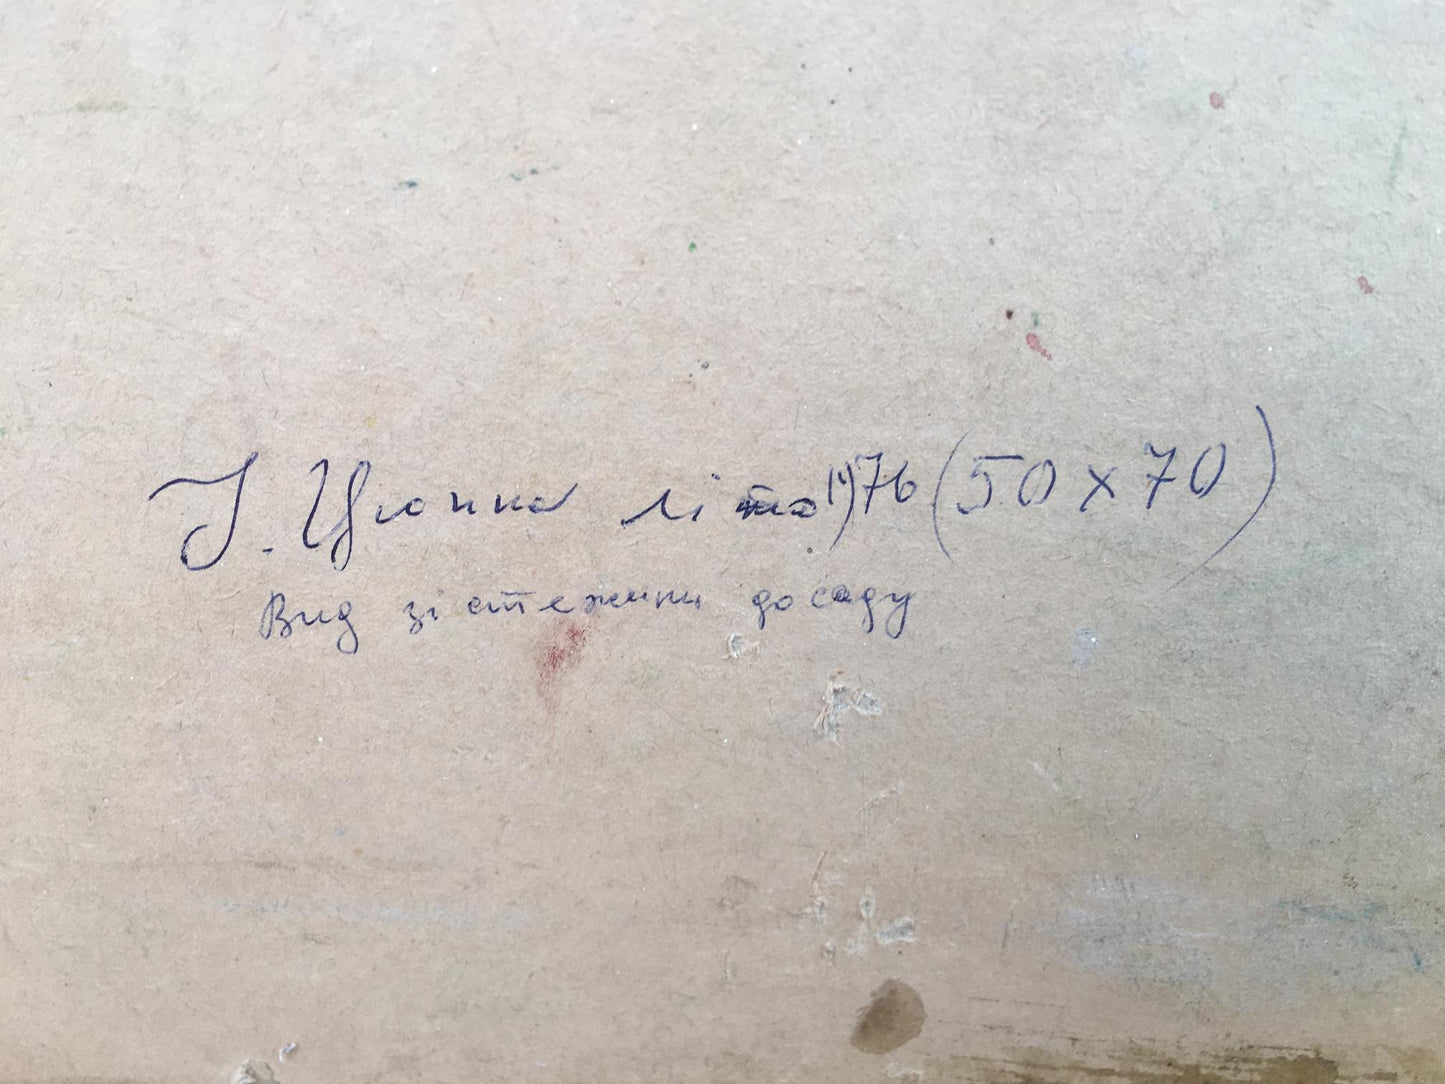 І. Цюпка літо 1976 (50 х 70)
Вид зі стежини до саду